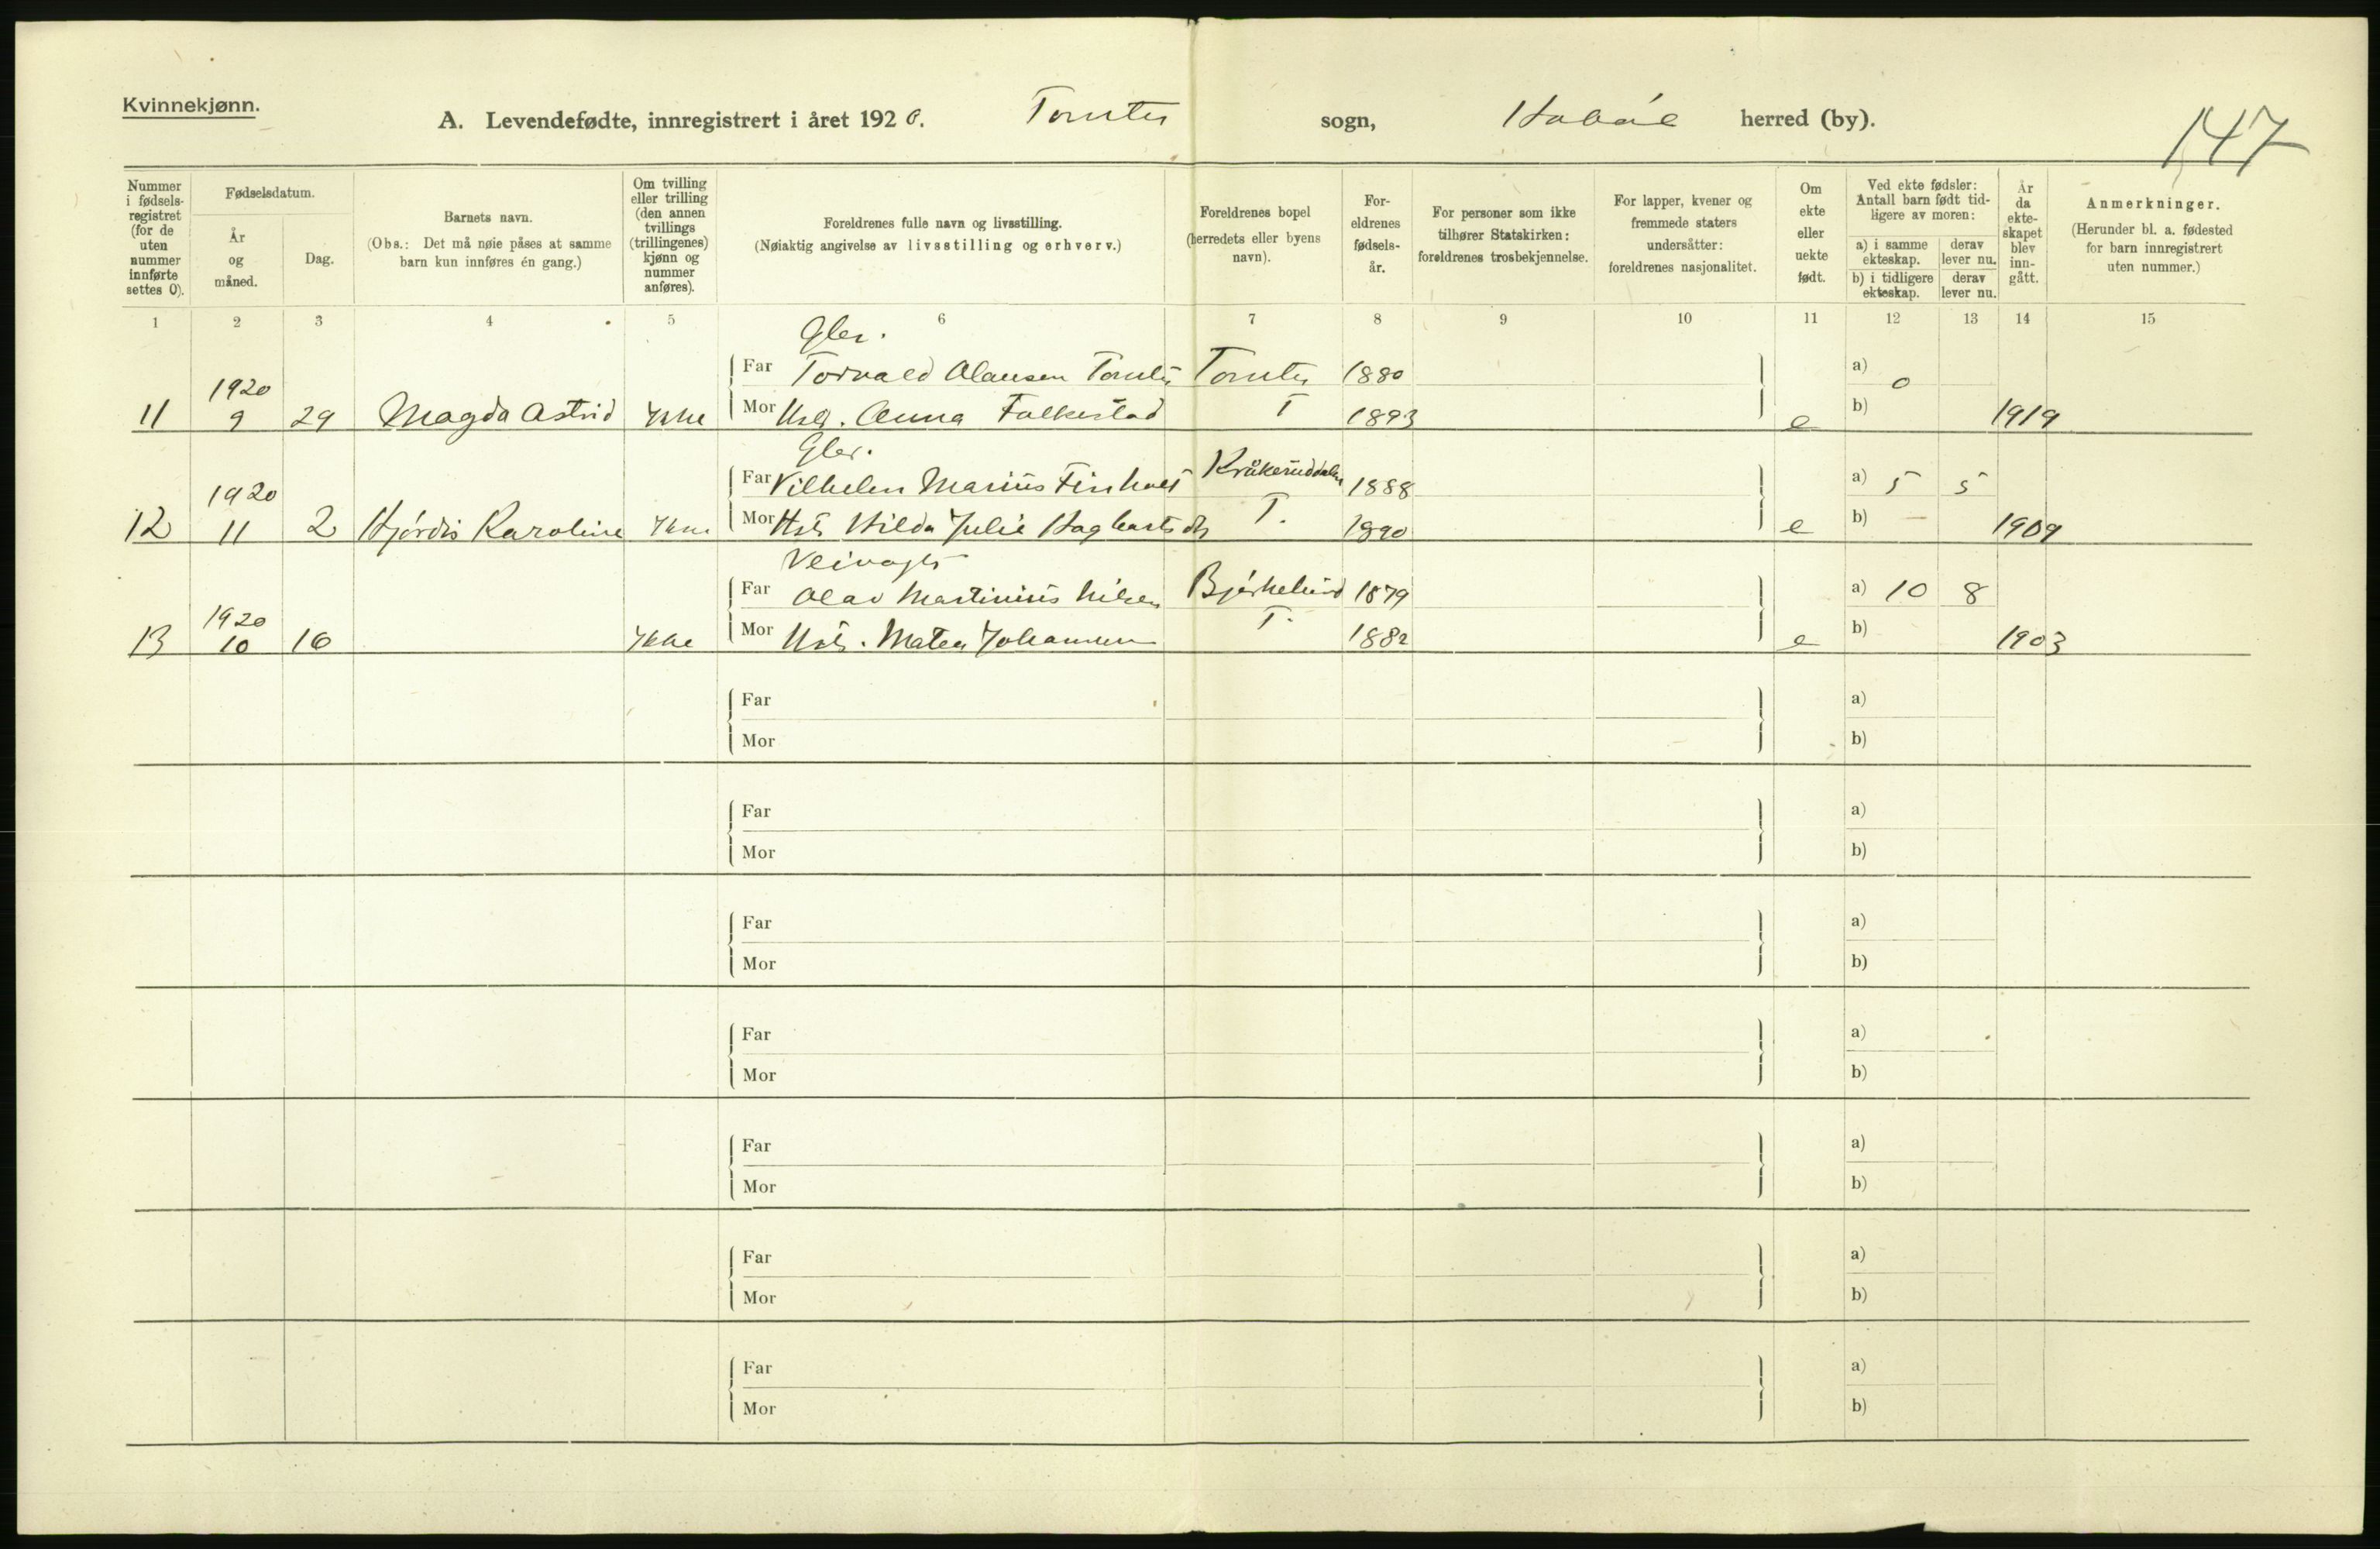 Kvinnekjønn.
A. Levendefødte, innregistrert i året 1920. Tomter sogn, Hobøl herred (by).
147
Nummer i fødsels-registret (for de uten nummer innførte settes 0).
Fødselsdatum.
År og måned.
Dag.
Barnets navn.
(Obs.: Det må nøie påses at samme barn kun innføres én gang.)
Om tvilling eller trilling (den annen tvillings (trillingenes) kjønn og nummer anføres).
Foreldrenes fulle navn og livsstilling.
(Nøiaktig angivelse av livsstilling og erhverv.)
Foreldrenes bopel (herredets eller byens navn).
For-eldrenes fødsels-år.
For personer som ikke tilhører Statskirken: foreldrenes trosbekjennelse.
For lapper, kvener og fremmede staters undersåtter: foreldrenes nasjonalitet.
Om ekte eller uekte født.
Ved ekte fødsler: Antall barn født tid-ligere av moren:
a) i samme ekteskap.
derav lever nu.
b) i tidligere ekteskap.
derav lever nu.
År da ekte-skapet blev inn-gått.
Anmerkninger.
(Herunder bl. a. fødested for barn innregistrert uten nummer.)
1 2 3 4 5 6 7 8 9 10 11 12 13 14 15
Far Torvald Olausen Tomter Tomter 1880 a) 0
11 1920 9 29 Magda Astrid Ikke Mor Anna Falkestad T 1893 e b) 1919
Far Vilhelm Marius 1888 a) 5 5
12 1920 11 2 Hjórdis Karoline Ikke Mor Hilda Julie T. 1890 e b) — 1909
Veivogt
Far Olav Martinius Nilsen Bjørkelund 1879 a) 10 8
13 1920 10 16 Ikke Mor Matea Johannesen T. 1882 e b) 1903
Far a)
Mor b)
Far a)
Mor b)
Far a)
Mor b)
Far a)
Mor b)
Far a)
Mor b)
Far a)
Mor b)
Far a)
Mor b)